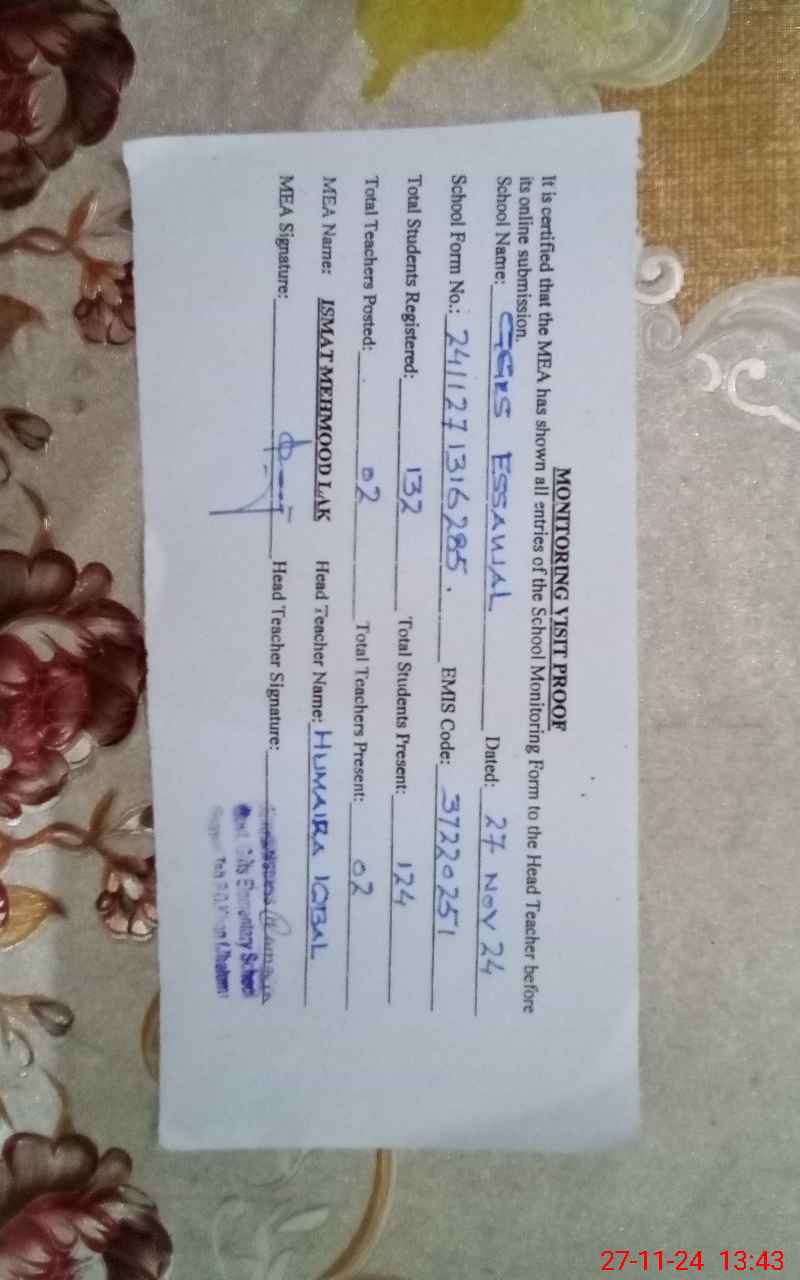 MONITORING VISIT PROOF
It is certified that the MEA has shown all entries of the School Monitoring Form to the Head Teacher before
its online submission.
School Name: GGES ESSAWAL Dated: 27 NOV 24
School Form No.: 2411271316285. EMIS Code: 37220251
Total Students Registered: 132 Total Students Present: 124
Total Teachers Posted: 02 Total Teachers Present: 02
MEA Name: ISMAT MEHMOOD LAK Head Teacher Name: HUMAIRA IQBAL
MEA Signature: Head Teacher Signature:
Elementary School
27-11-24 13:43